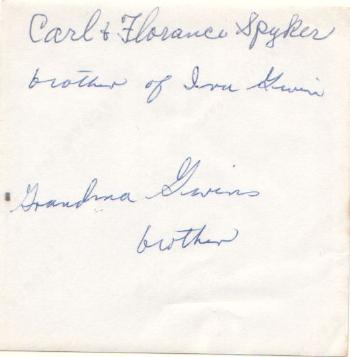 Carl & Florance Spyker
brother of Iva Gwin
Grandma Gwins
brother